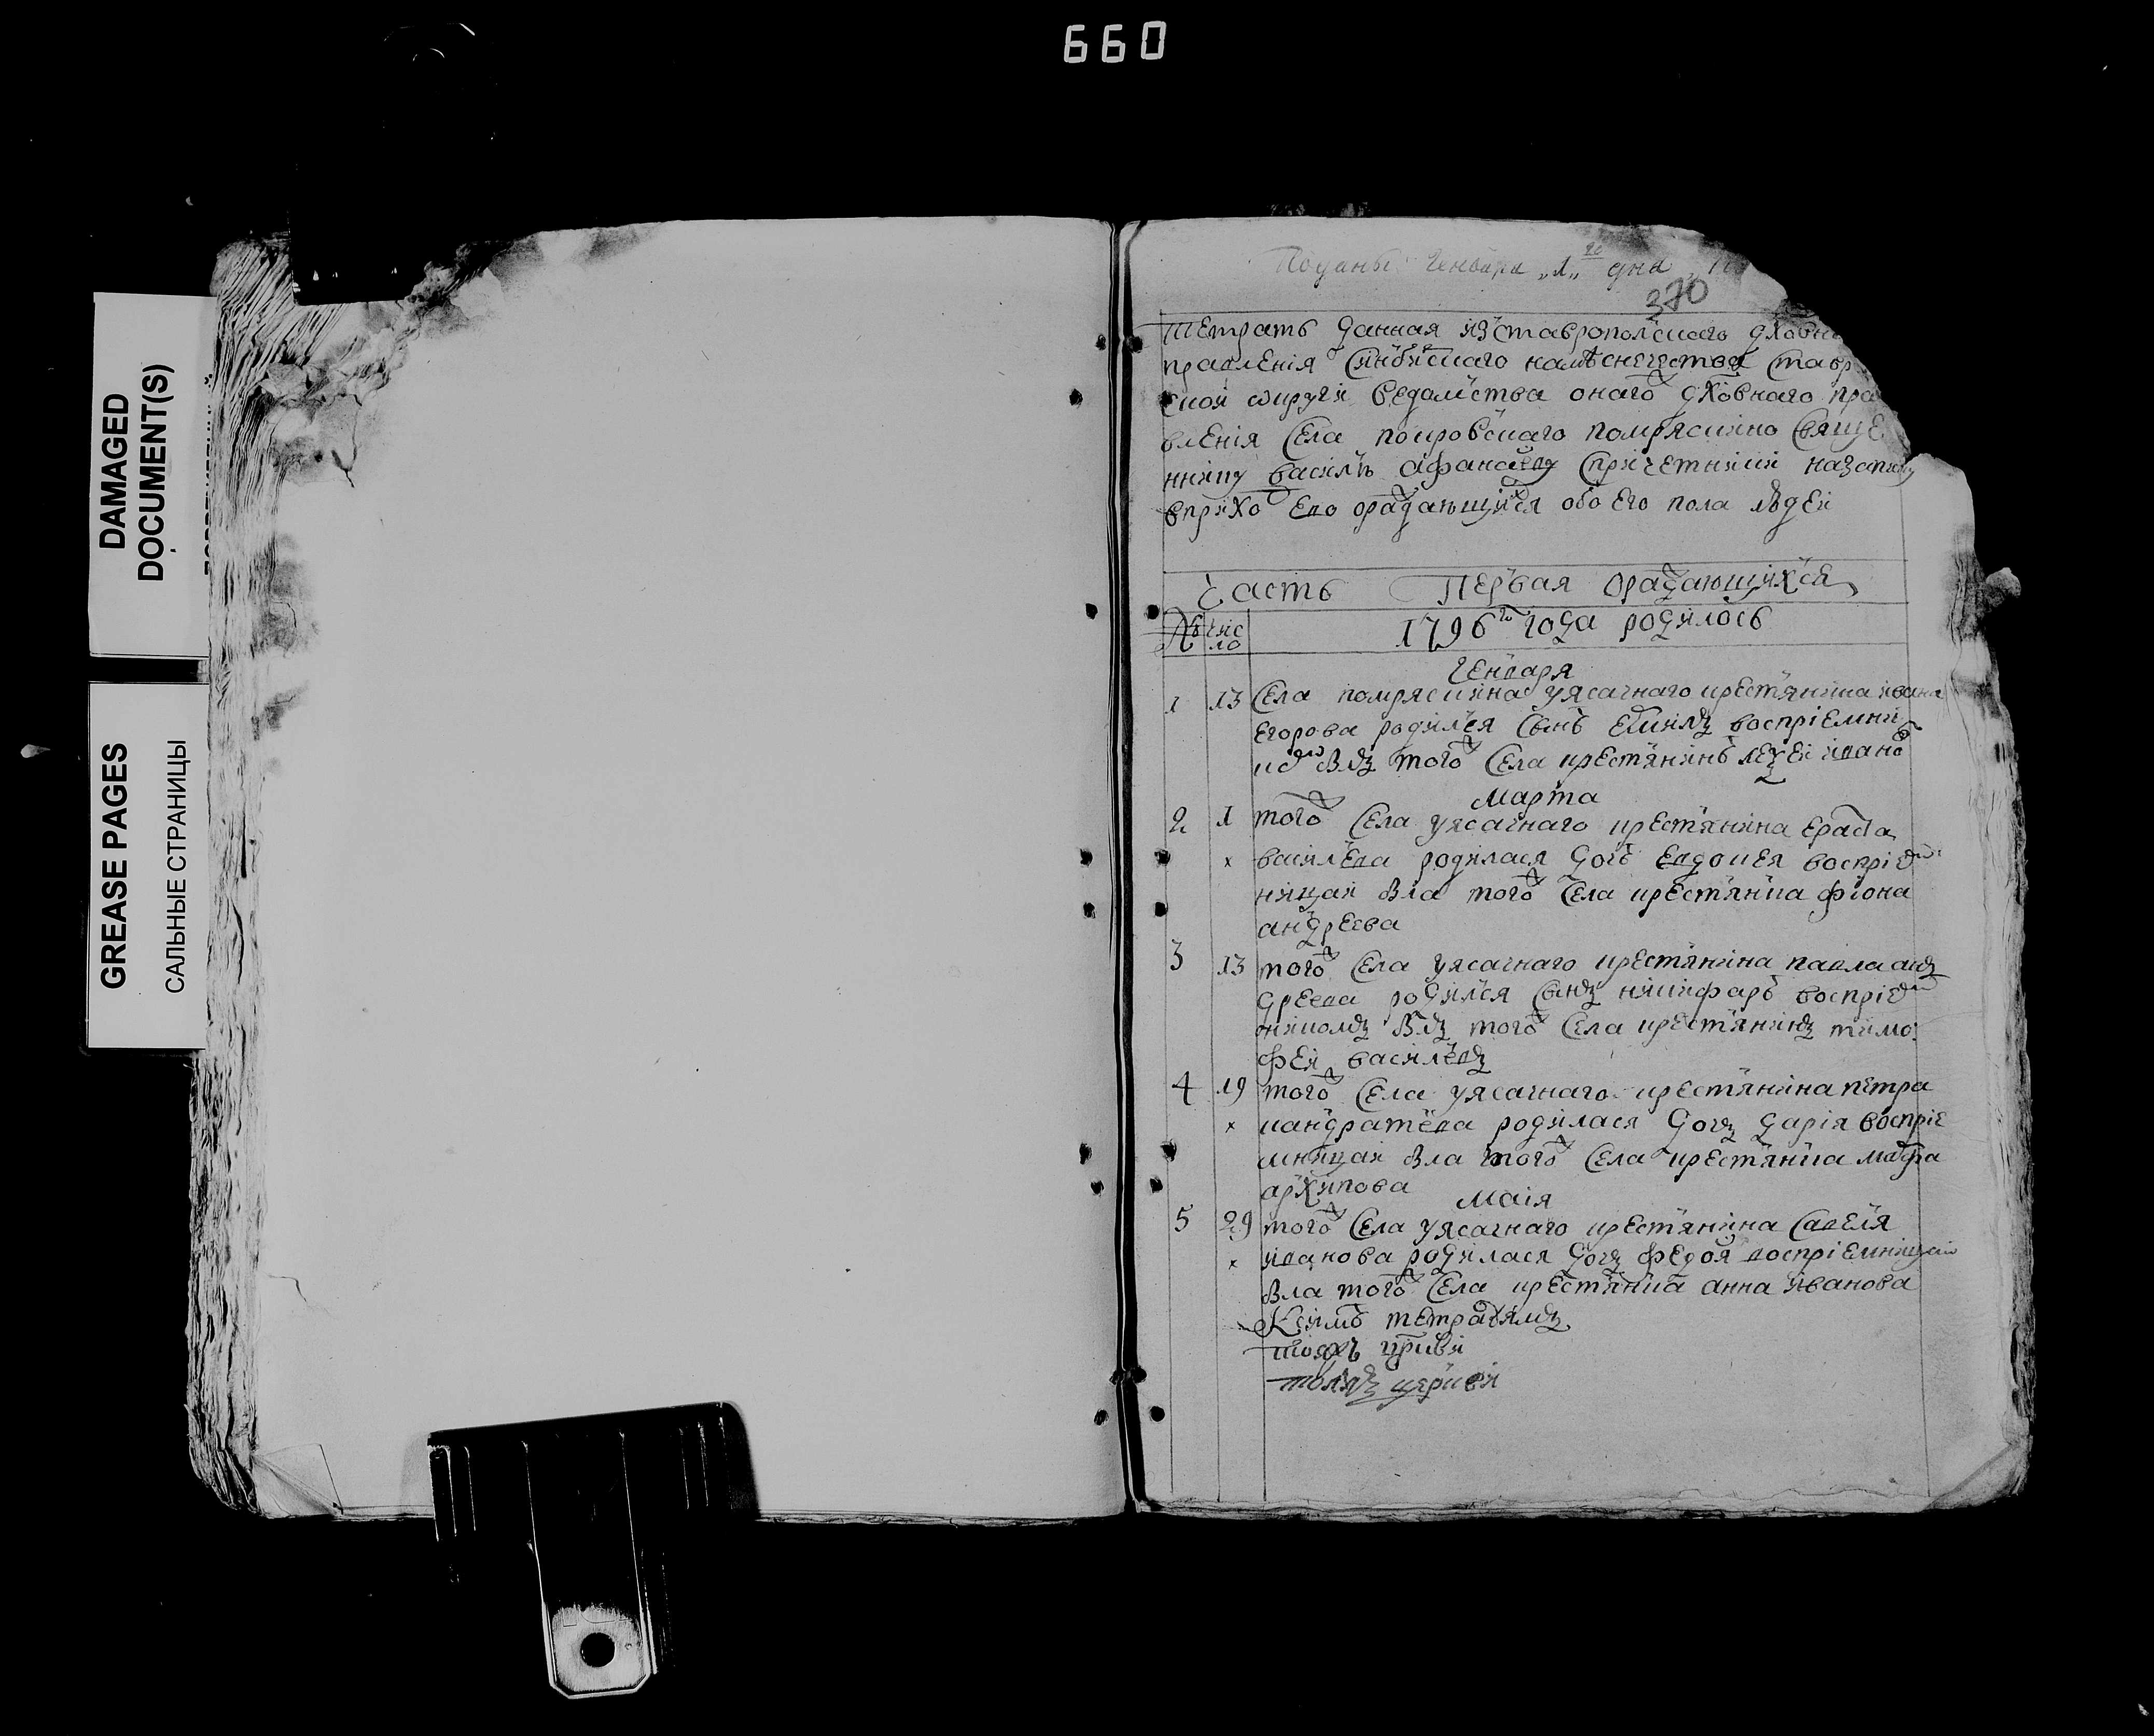 660
DAMAGED
DOCUMENT(S)
GREASE PAGES
САЛЬНЫЕ СТРАНИЦЫ
Поданы Генваря „1„ го дня
370
тетрать данная изставропольскаго дховна
правления синбирскаго наместничества ставр
ской округи ведомства онаго дховнаго пра
вления села покровскаго помряскино свяще
ннику василью афанасеву спричетники назапику
вприхо ево ораждающихся обоего пола людей
Часть Первая ораждающихся
№ чис
ло
1796го года родилось
Генваря
1 13 села помряскина уясачнаго крестьянина ивана
егорова родился сынъ воспріемни
комъ былъ того села крестьянинъ иванов
марта
2 1 того села уясачнаго крестьянина ераста
х васильева родилася дочь евдокея воспріем
ницаи была того села крестьянка фіона
андреева
3 13 того села уясачнаго крестьянина павла анъ
дреева родился сынъ никифаръ воспріем
никомъ былъ того села крестьянинъ тимо
фей васильевъ
4 19 того села уясачнаго крестьянина петра
х кандратьева родилася дочь дарія воспріе
мницаи была того села крестьянка марфа
архипова
маія
5 29 того села уясачнаго крестьянина савелья
х иванова родилася дочь федося воспріемницаи
была того села крестьянка анна иванова
Ксимъ тетратямъ
тояжъ цркви
тояжъ церкви